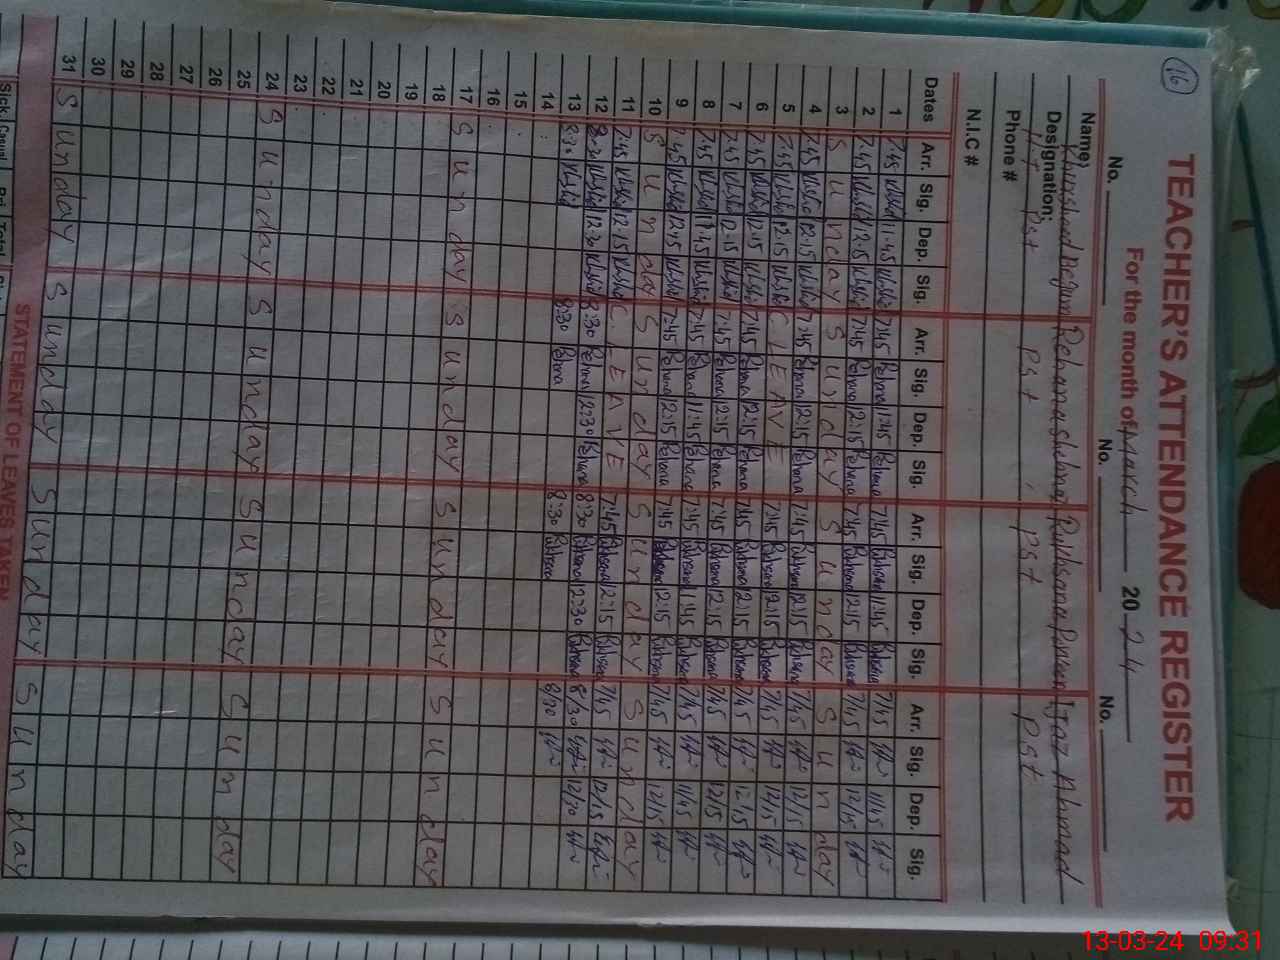 16
TEACHER'S ATTENDANCE REGISTER
For the month of March 2024
No. No. No.
Name) Khurshied begum Rehana Shehnaz Rukhsana Parveen Ijaz Ahmad
Designation: Pst Pst Pst Pst
Phone#
N.I.C #
Dates Arr. Sig. Dep. Sig. Arr. Sig. Dep. Sig. Arr. Sig. Dep. Sig. Arr. Sig. Dep. Sig.
1 7:45 11:45 7:45 Rehana 11:45 Rehana 7:45 Rukhsana 11:45 Rukhsana 7/45 11/45
2 7:45 12:15 7:45 Rehana 12:15 Rehana 7:45 Rukhsana 12:15 Rukhsana 7/45 12/15
3 Sunday Sunday Sunday Sunday
4 7:45 12:15 7:45 Rehana 12:15 Rehana 7:45 Rukhsana 12:15 Rukhsana 7/45 12/15
5 7:45 12:15 C. LEAVE 7:45 Rukhsana 12:15 Rukhsana 7/45 12/15
6 7:45 12:15 7:45 Rehana 12:15 Rehana 7:45 Rukhsana 12:15 Rukhsana 7/45 12/15
7 7:45 12:15 7:45 Rehana 12:15 Rehana 7:45 Rukhsana 12:15 Rukhsana 7/45 12/15
8 7:45 11:45 7:45 Rehana 11:45 Rehana 7:45 Rukhsana 11:45 Rukhsana 7/45 11/45
9 7:45 12:45 7:45 Rehana 12:15 Rehana 7:45 Rukhsana 12:15 Rukhsana 7/45 12/15
10 Sunday Sunday Sunday Sunday
11 7:45 12:15 C. LEAVE 7:45 Rukhsana 12:15 Rukhsana 7/45 12/15
12 8:30 12:30 8:30 Rehana 12:30 Rehana 8:30 Rukhsana 12:30 Rukhsana 8/30 12/30
13 8:30 8:30 Rehana 8:30 Rukhsana 8/30
14
15
16
17 Sunday Sunday Sunday Sunday
18
19
20
21
22
23
24 Sunday Sunday Sunday Sunday
25
26
27
28
29
30
31 Sunday Sunday Sunday Sunday
STATEMENT OF LEAVES TAKEN
Sick. Casual Pri Total
13-03-24 09:31